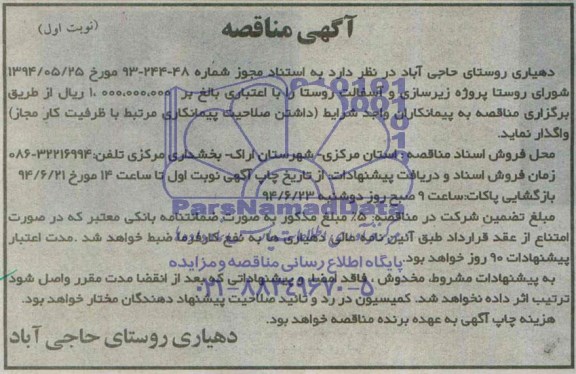 آگهی مناقصه
(نوبت اول)
دهیاری روستای حاجی آباد در نظر دارد به استناد مجوز شماره ۴۸-۲۴۴-۹۳ مورخ ۱۳۹۴/۰۵/۲۵
شورای روستا پروژه زیرسازی و آسفالت روستا را با اعتباری بالغ بر ۱.۰۰۰.۰۰۰.۰۰۰ ریال از طریق
برگزاری مناقصه به پیمانکاران واجد شرایط (داشتن صلاحیت پیمانکاری مرتبط با ظرفیت کار مجاز)
واگذار نماید.
محل فروش اسناد مناقصه: استان مرکزی- شهرستان اراک- بخشداری مرکزی تلفن:۳۲۲۱۶۹۹۴-۰۸۶
زمان فروش اسناد و دریافت پیشنهادات: از تاریخ چاپ آگهی نوبت اول تا ساعت ۱۴ مورخ ۹۴/۶/۲۱
بازگشایی پاکات:ساعت ۹ صبح روز دوشنبه ۹۴/۶/۲۳
مبلغ تضمین شرکت در مناقصه: ۵٪ مبلغ مذکور به صورت ضمانتنامه بانکی معتبر که در صورت
امتناع از عقد قرارداد طبق آئین نامه مالی دهیاری ها به نفع کارفرما ضبط خواهد شد .مدت اعتبار
پیشنهادات ۹۰ روز خواهد بود.
به پیشنهادات مشروط، مخدوش ، فاقد امضا و پیشنهاداتی که بعد از انقضا مدت مقرر واصل شود
ترتیب اثر داده نخواهد شد. کمیسیون در رد و تائید صلاحیت پیشنهاد دهندگان مختار خواهد بود.
هزینه چاپ آگهی به عهده برنده مناقصه خواهد بود.
دهیاری روستای حاجی آباد
ParsNamadData
پایگاه اطلاع رسانی مناقصه و مزایده
۰۲۱-۸۸۳۴۹۶۷۰-۵